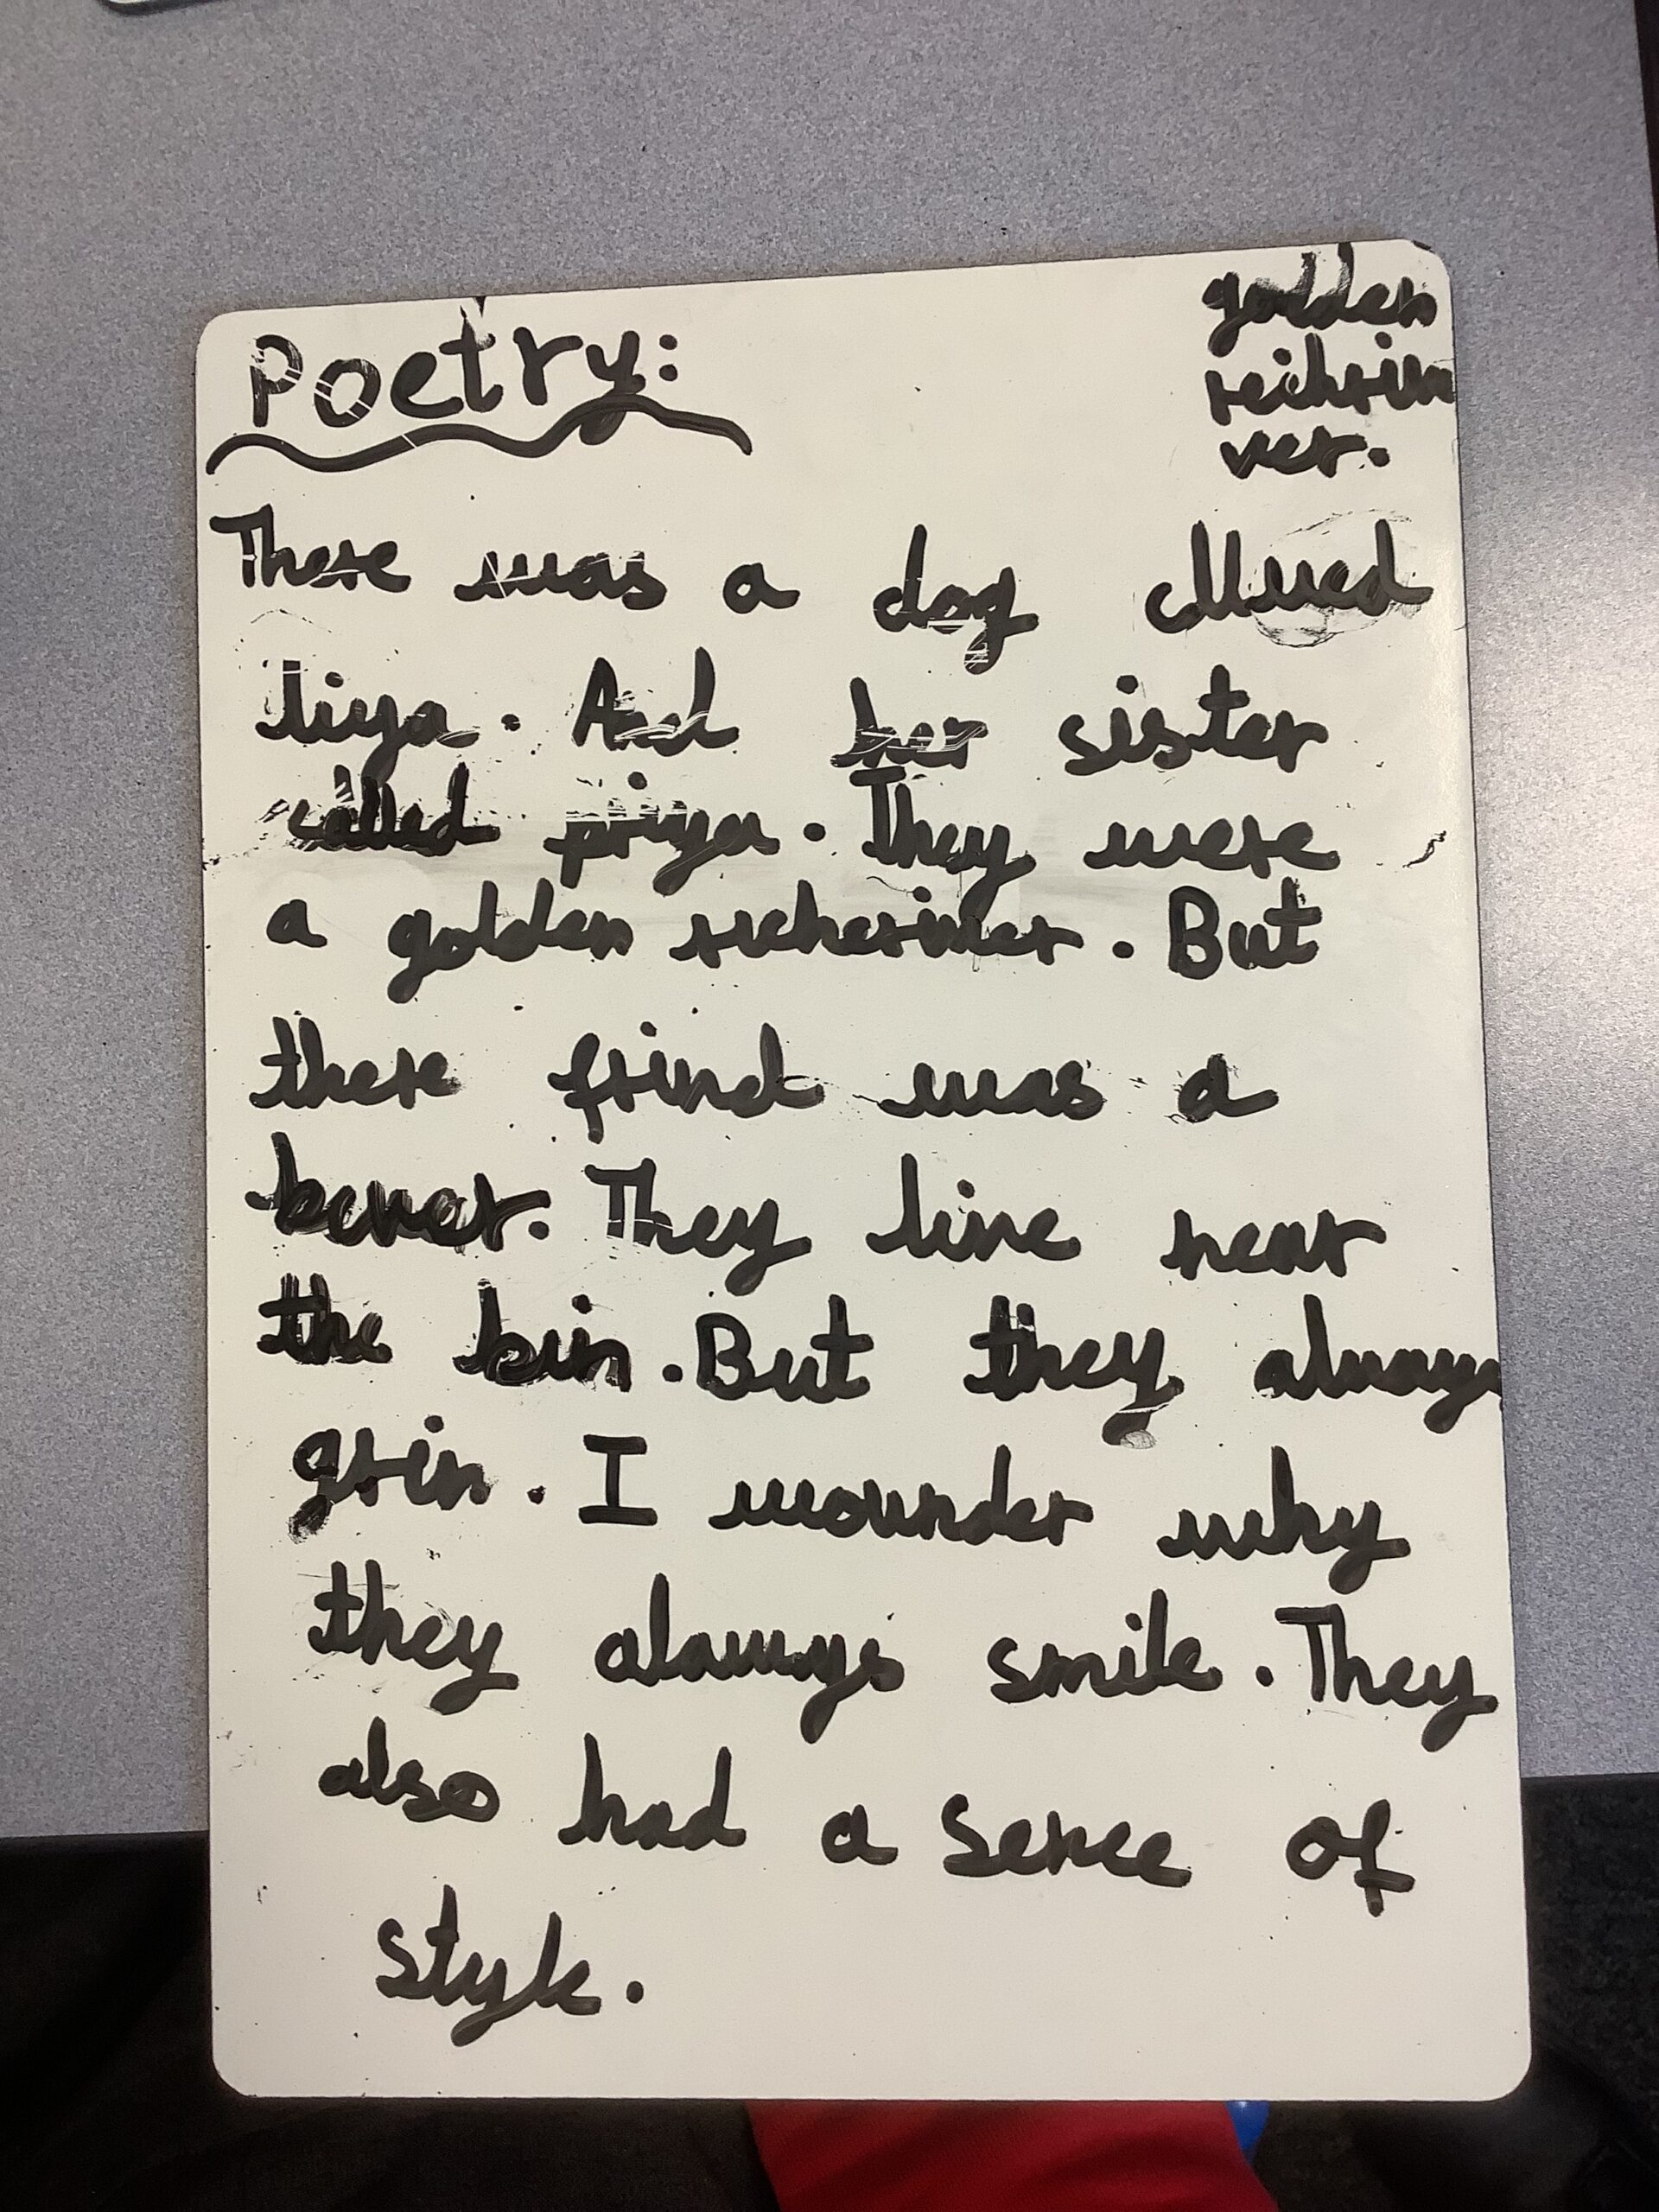 Poetry:
golden
ver.
There was a dog
liya. And her sister
called priya. They were
a golden. But
there frind was a
They live near
the bin. But they always
grin. I wounder why
they always smile. They
also had a sence of
style.